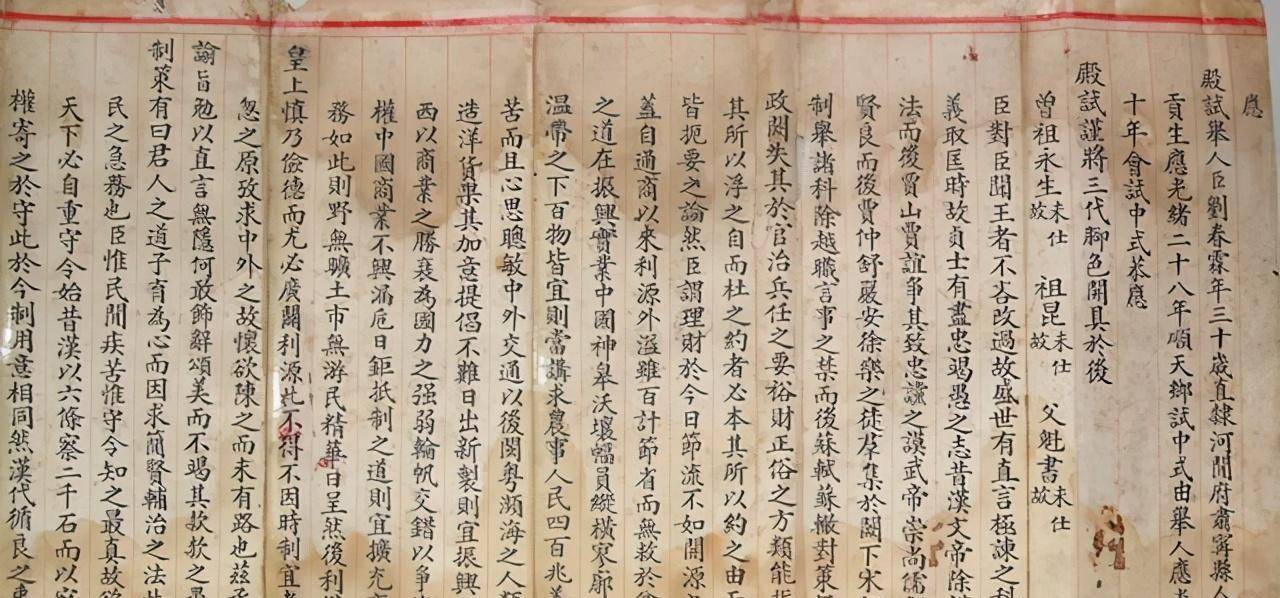 應
殿試舉人臣劉春霖年三十歲直隸河間府肅寧縣人
貢生應光緒二十八年順天鄉試中式由舉人應
十年會試中式恭應
殿試謹將三代腳色開具於後
曾祖永生未仕故 祖昆未仕故 父魁書未仕故
臣對臣聞王者不吝改過故盛世有直言極諫之科
義取匡時故貞士有盡忠竭愚之志昔漢文帝除
法而後賈山賈誼爭其致忠讜之謨武帝崇尚儒
賢良而後賈仲舒嚴安徐樂之徒群集於闕下宋
制舉諸科除越職言事之禁而後蘇軾蘇轍對策
政闕失其於官治兵任之要裕財正俗之方類能指
其所以浮之自而杜之約者必本其所以約之由
皆扼要之論然臣謂理財於今日節流不如開源
蓋自通商以來利源外溢雖百計節省而無救於
之道在振興實業中國神皋沃壤幅員縱橫寥廓
溫帶之下百物皆宜則當講求農事人民四百兆
苦而且心思聰敏中外交通以後閩粵瀕海之人類
造洋貨果其加意提倡不難日出新製則宜振興
西以商業之勝衰為國力之强弱輪帆交錯以爭
權中國商業不興漏卮日鉅抵制之道則宜擴充
務如此則野無曠土市無游民精華日呈然後利
皇上慎乃儉德而尤必廣闢利源此不得不因時制宜
怱之原攷求中外之故懷欲陳之而未有路也茲
諭旨勉以直言無隱何敢飾辭頌美而不竭其款款之
制策有曰君人之道子育為心而因求簡賢輔治之法此
民之急務也臣惟民間疾苦惟守令知之最真故欲
天下必自重守令始昔漢以六條察二千石而以
權寄之於守此於今制用意相同然漢代循良之